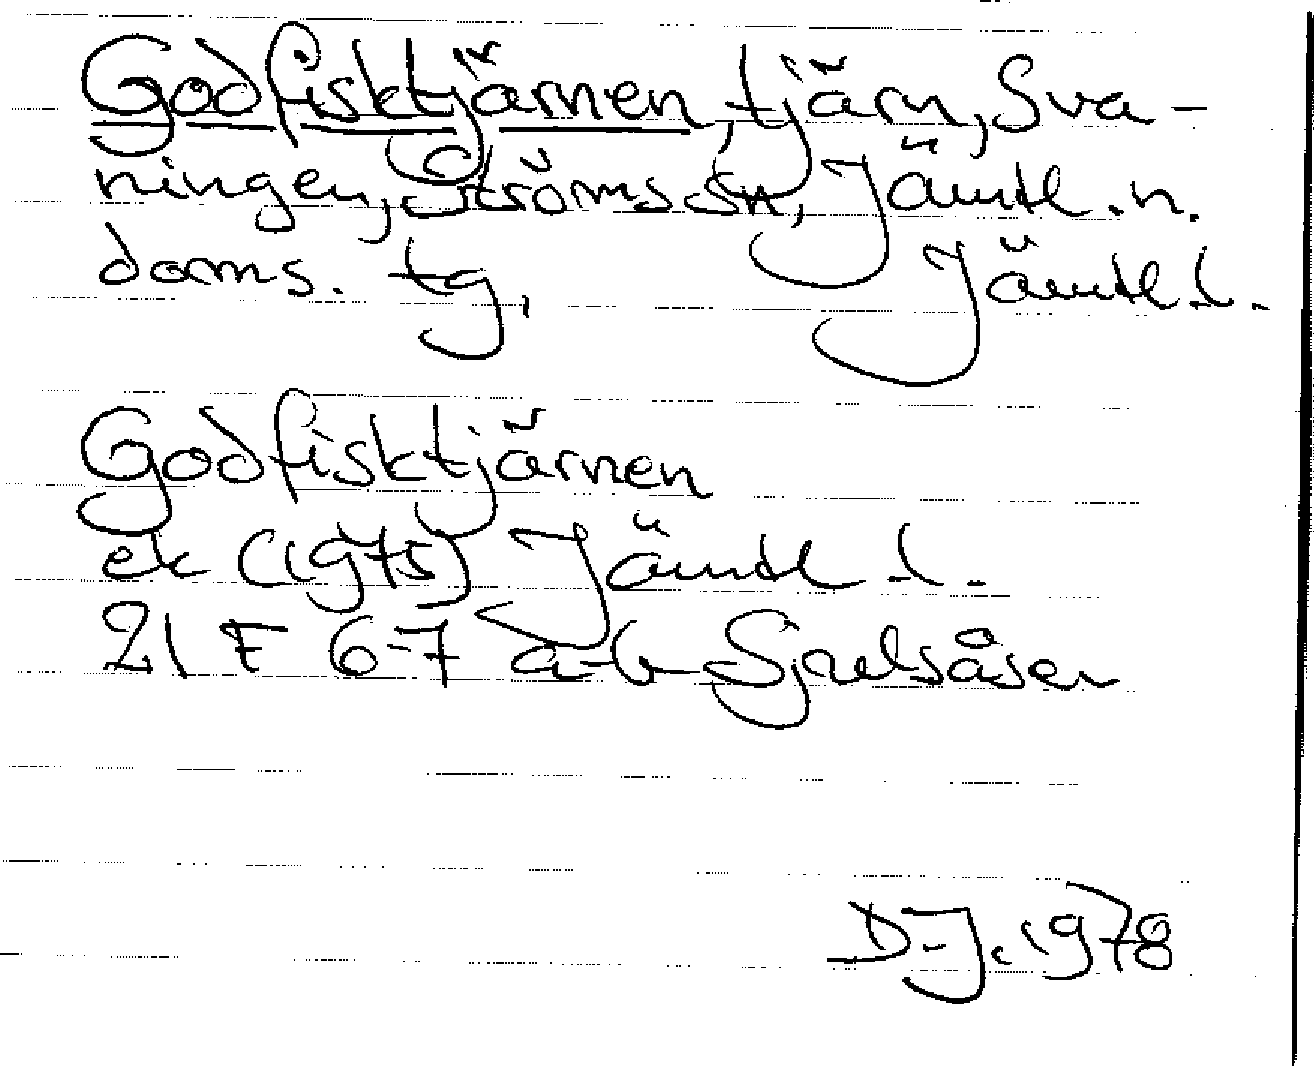 Godfisktjärnen, tjärn, Sva-
ningen, Ströms sn, Jämtl. n.
doms. tg, Jämtl. l.
Godfisktjärnen
ek (1975) Jämtl. l.
21 F 6-7 a-b Sjulsåsen
D-J. 1978